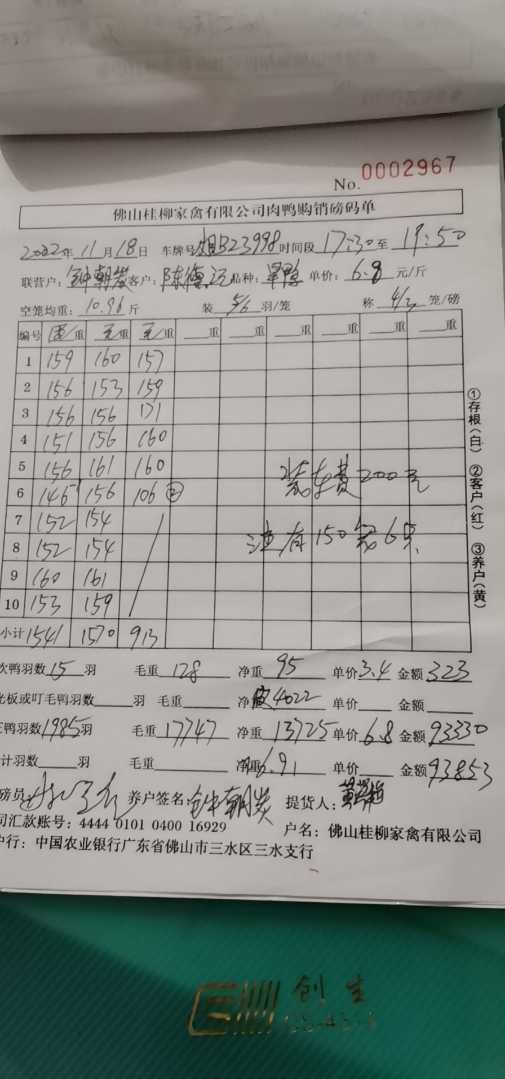 No. 0002967
佛山桂柳家禽有限公司肉鸭购销磅码单
2022年11月18日 车牌号 B23998 时间段 17:30至 19:50
联营户: 钟朝 客户: 陈 品种: 单价: 6.8 元/斤
空笼均重: 10.96 斤 装 5/6 羽/笼 称 笼/磅
编号 重 重 重 重 重 重 重 重
1 159 160 157
2 156 153 159
3 156 156 171
4 151 156 160
5 156 161 160
6 146 156 106 ②
7 152 154
8 152 154
9 160 161
10 153 159
小计 1541 1570 913
装车费200元
注有150笼6只
①存根(白) ②客户(红) ③养户(黄)
次鸭羽数 15 羽 毛重 128 净重 95 单价 3.4 金额 323
光板或叮毛鸭羽数 羽 毛重 净 皮4022 单价 金额
鸭羽数 1985羽 毛重 17747 净重 13725 单价 6.8 金额 93330
计羽数 羽 毛重 净重 6.91 单价 金额 93853
磅员 养户签名: 钟朝 提货人: 黄
司汇款账号: 4444 0101 0400 16929 户名: 佛山桂柳家禽有限公司
户行: 中国农业银行广东省佛山市三水区三水支行
创生